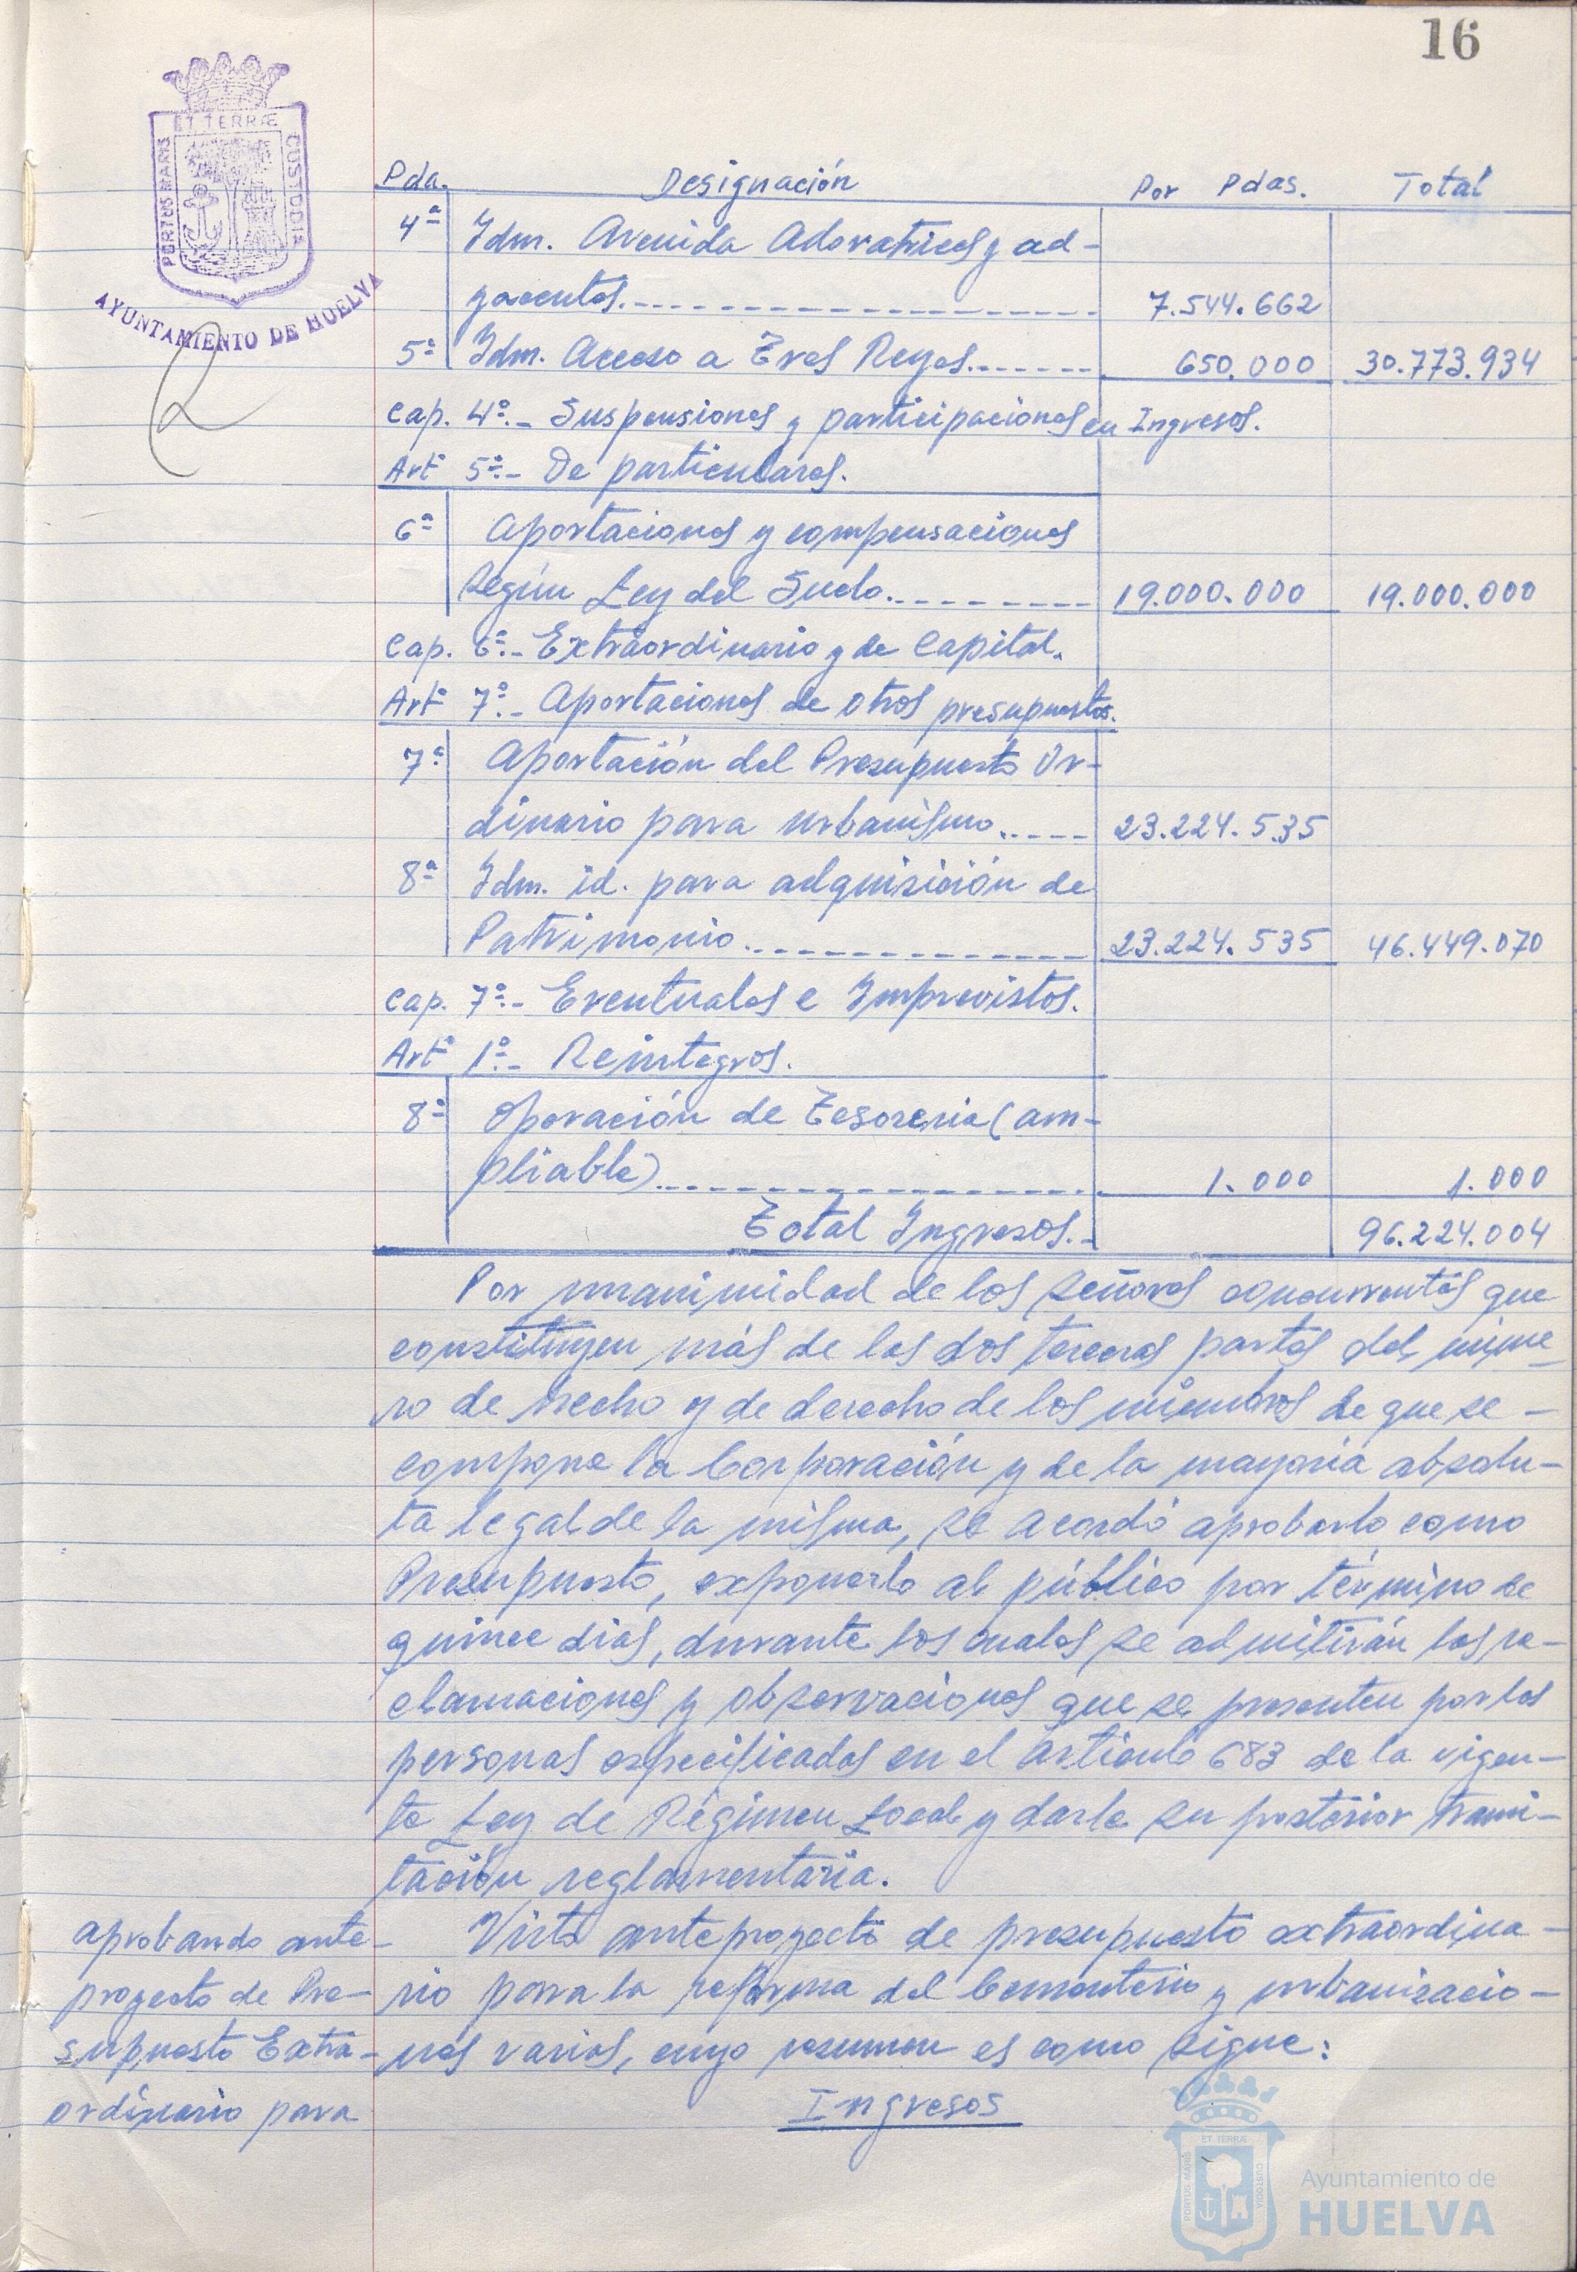 16
ET TERRÆ
PORTUS MARIS
CUSTODIA
AYUNTAMIENTO DE HUELVA
Pda. Designación Por Pdas. Total
4ª Idm. Avenida Adoratrices y ad-
yacentes. 7.544.662
5ª Idm. Acceso a Tres Reyes. 650.000 30.773.934
Cap. 4º.- Suspensiones y participaciones en Ingresos.
Artº 5º.- De particulares.
6ª Aportaciones y compensaciones
según Ley del Suelo. 19.000.000 19.000.000
Cap. 6º.- Extraordinario y de Capital.
Artº 7º.- Aportaciones de otros presupuestos.
7ª Aportación del Presupuesto Or-
dinario para urbanismo. 23.224.535
8ª Idm. id. para adquisición de
Patrimonio. 23.224.535 46.449.070
Cap. 7º.- Eventuales e Imprevistos.
Artº 1º.- Reintegros.
8ª Operación de Tesoreria (am-
pliable) 1.000 1.000
Total Ingresos.- 96.224.004
Por unanimidad de los señores concurrentes que
constituyen más de las dos terceras partes del núme-
ro de hecho y de derecho de los miembros de que se -
compone la Corporación y de la mayoria absolu-
ta legal de la misma, se acordó aprobarlo como
Presupuesto, exponerlo al público por término de
quince dias, durante los cuales se admitirán las re-
clamaciones y observaciones que se presenten por las
personas especificadas en el artículo 683 de la vigen-
te Ley de Régimen Local y darle su posterior trami-
tación reglamentaria.
aprobando ante-
proyecto de Pre-
supuesto Extra-
ordinario para
Visto anteproyecto de presupuesto extraordina-
rio para la reforma del Cementerio y urbanizacio-
nes varias, cuyo resumen es como sigue:
Ingresos
ET TERRÆ
PORTUS MARIS
CUSTODIA
Ayuntamiento de
HUELVA